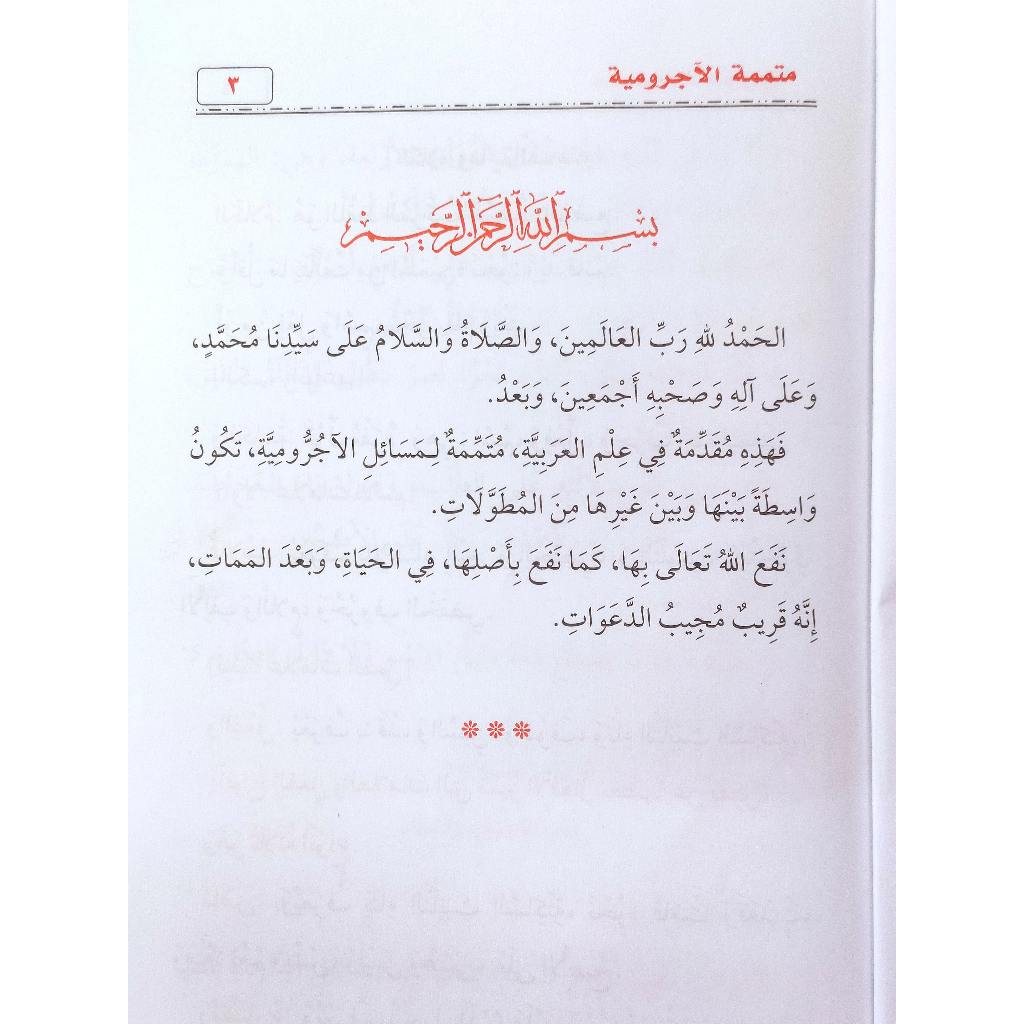 متممة الآجرومية
٣
بسم الله الرحمن الرحيم
الحَمْدُ للهِ رَبِّ العَالَمِينَ، وَالصَّلَاةُ وَالسَّلَامُ عَلَى سَيِّدِنَا مُحَمَّدٍ،
وَعَلَى آلِهِ وَصَحْبِهِ أَجْمَعِينَ، وَبَعْدُ.
فَهَذِهِ مُقَدِّمَةٌ فِي عِلْمِ العَرَبِيَّةِ، مُتَمِّمَةٌ لِمَسَائِلِ الآجُرُّومِيَّةِ، تَكُونُ
وَاسِطَةً بَيْنَهَا وَبَيْنَ غَيْرِهَا مِنَ المُطَوَّلَاتِ.
نَفَعَ اللهُ تَعَالَى بِهَا، كَمَا نَفَعَ بِأَصْلِهَا، فِي الحَيَاةِ، وَبَعْدَ المَمَاتِ،
إِنَّهُ قَرِيبٌ مُجِيبُ الدَّعَوَاتِ.